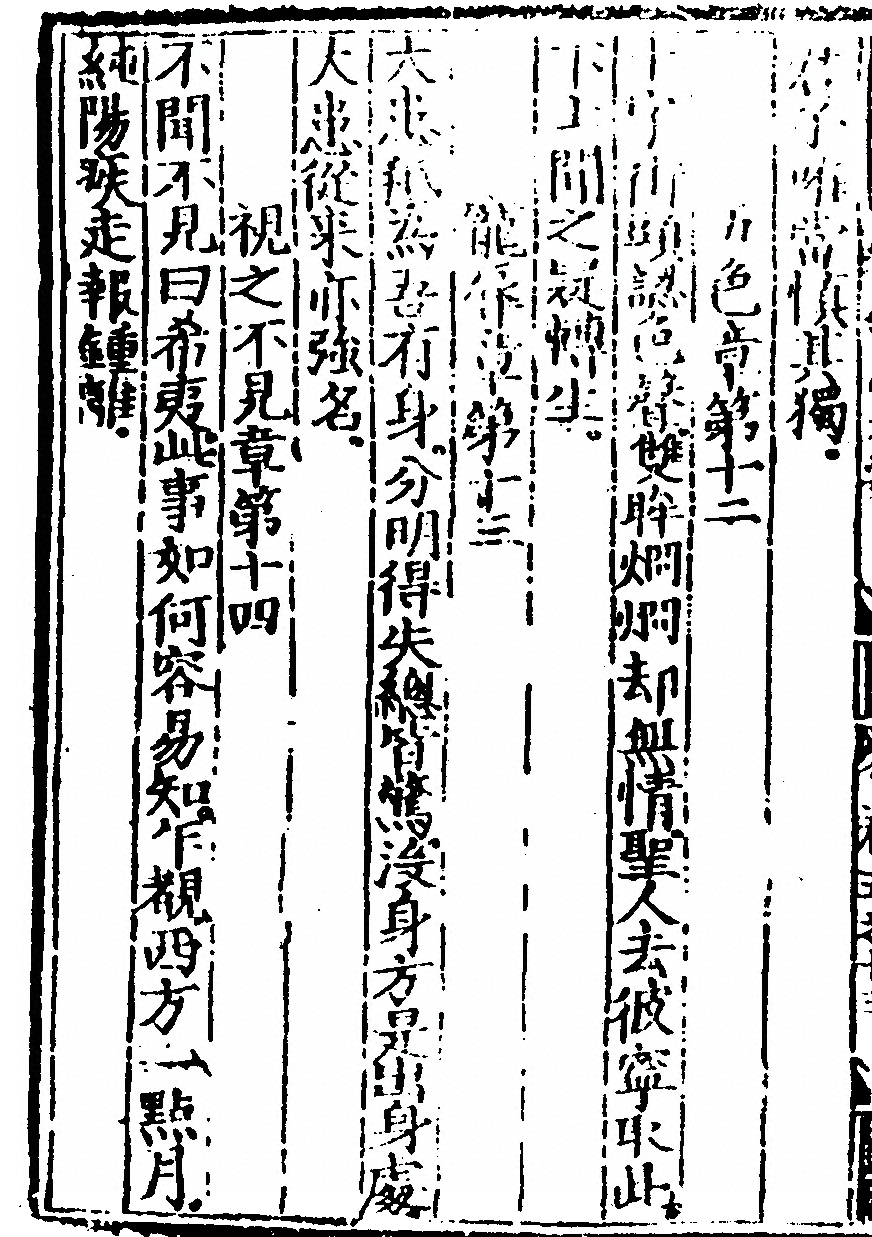 慎其獨。
五色章第十二
十字街頭認色聲。雙眸烱烱却無情。聖人去彼寧取此。
下士聞之疑轉生。
寵辱章第十三
大患秖為吾有身。分明得失總皆驚。沒身方是出身處。
大患從来亦強名。
視之不見章第十四
不聞不見曰希夷。此事如何容易知。乍覩西方一點月。
純陽疾走報鍾離。